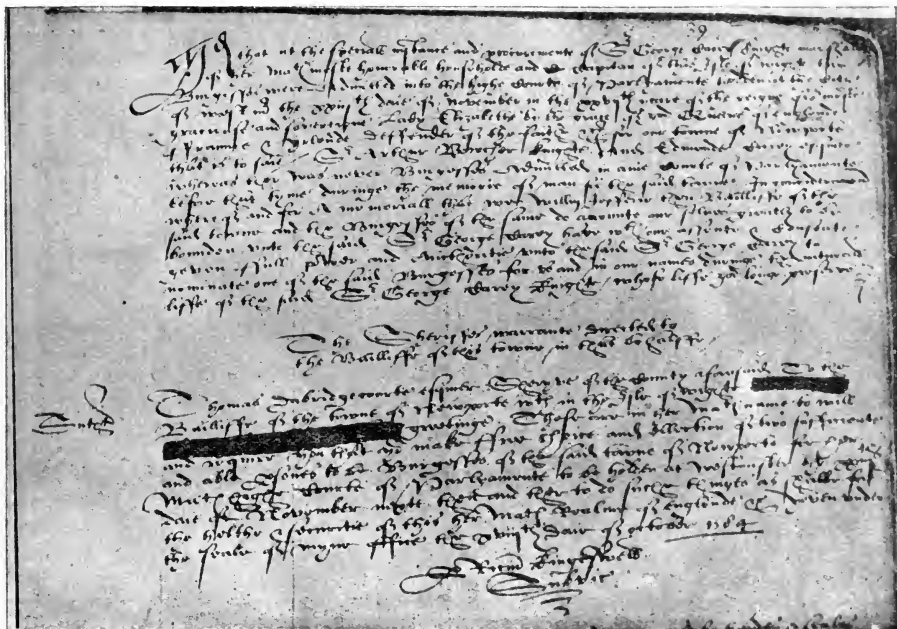 39
that at the speciall instance and procurement of Sr George Carey knight marshall
of her Maties most honorable householde and Capitan of this Isle of wight two
Burgisses were admitted into the highe Courte of Parliamente holden at the
in the xxiijth daie of november in the xxvijth yeare of the reigne of our most
gracious and soveraigne Lady Elizabethe by the grace of god Queene of englande
Fraunce & Irelande deffender of the faith &c for our towne of Newporte
that is to saie Sr Arthur knighte And Edmunde Carey esquier
whereas ther was never Burgisses admitted in anie Courte of Parlyamente
before that tyme duringe the memorie of man for the said towne In consideracion
wherof and for A memoriall therof wee Baillyffe of the
said towne and the Burgisses of the same do accompte our selves greatly to be
bounden unto the said Sr George Carey have wth one assente & consente
geven full power and aucthoritie unto the said Sr George Carey to
nominate one of the said Burgisses for us and in our names duringe the naturall
liffe of the said Sr George Carey knighte, whose liffe god longe preserve
The Sheriffes warrante directed to
the Bailliffe of this towne in this behalffe
Thomas Dabridgecourte esquier Sheryve of the County aforesaid To the
Bailliffe of the towne of Newporte wth in the Isle of wighte
gretinge Thes are in her Maties name to will
and requier you that you make choice and ellection of two sufficiente
and able to be Burgisses of the said towne of Newporte for
Maties highe Courte of Parlyamente to be holden at Westminster the xxiijth
daie of November nexte then and ther to do suche thinges as shalbe for
the helthe & securitie of this her Maties Realme of englande &c Geven under
the seale of myne office the daie of october 1584
Richard Kingeswell